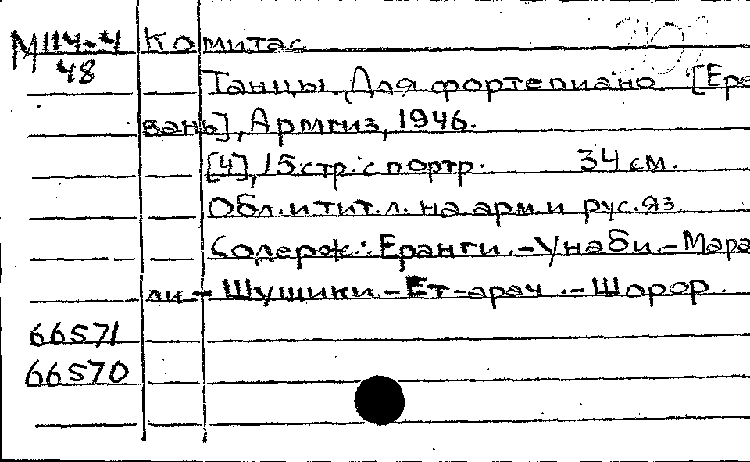 М114-4 Комитас
48
Танцы. Для фортепиано. [Ере
вань], Армгиз, 1946.
[4], 15 стр. с портр. 34 см.
Обл. и тит. л. на арм. и рус. яз
Содерж.: Еранги. - Унаби. - Мара
ли - Шушики - Ет-арач. - Шорор.
66571
66570